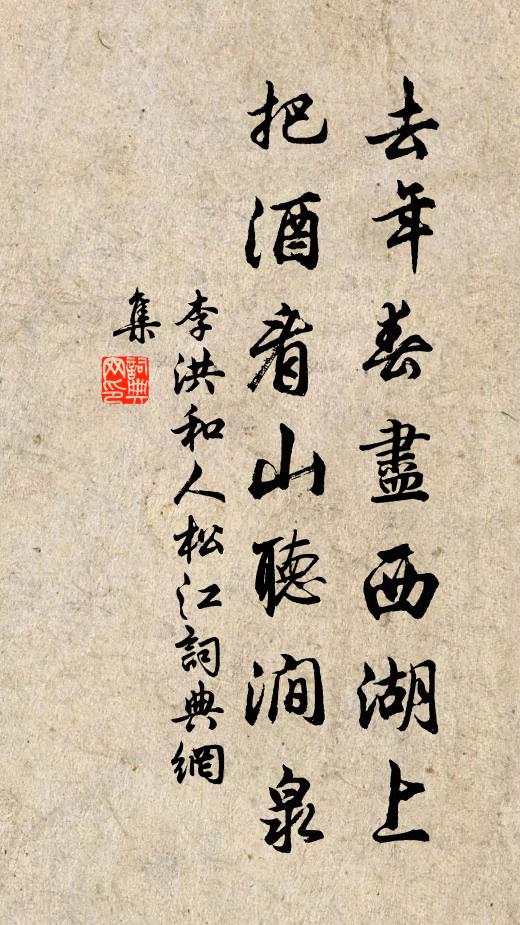 去年春盡西湖上
把酒看山聽澗泉
李洪和人松江詞典網
集
詞典
网印